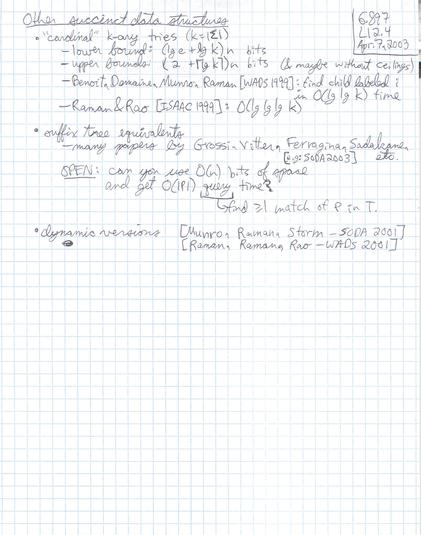 Other succinct data structures
6.897
L12.4
Apr. 7, 2003
• "cardinal" k-ary tries (k=|Σ|)
– lower bound: (lg e + lg k) n bits
– upper bounds: (2 + ⌈lg k⌉) n bits (& maybe without ceilings)
– Benoit, Demaine, Munro, Raman [WADS 1999]: find child labeled i
in O(lg lg k) time
– Raman & Rao [ISAAC 1999]: O(lg lg lg k)
• suffix tree equivalents
– many papers by Grossi, Vitter, Ferragina, Sadakane,
[e.g. SODA 2003] etc.
OPEN: can you use O(n) bits of space
and get O(|P|) query time?
↳ find ≥1 match of P in T.
• dynamic versions [Munro, Raman, Storm – SODA 2001]
[Raman, Raman, Rao – WADS 2001]